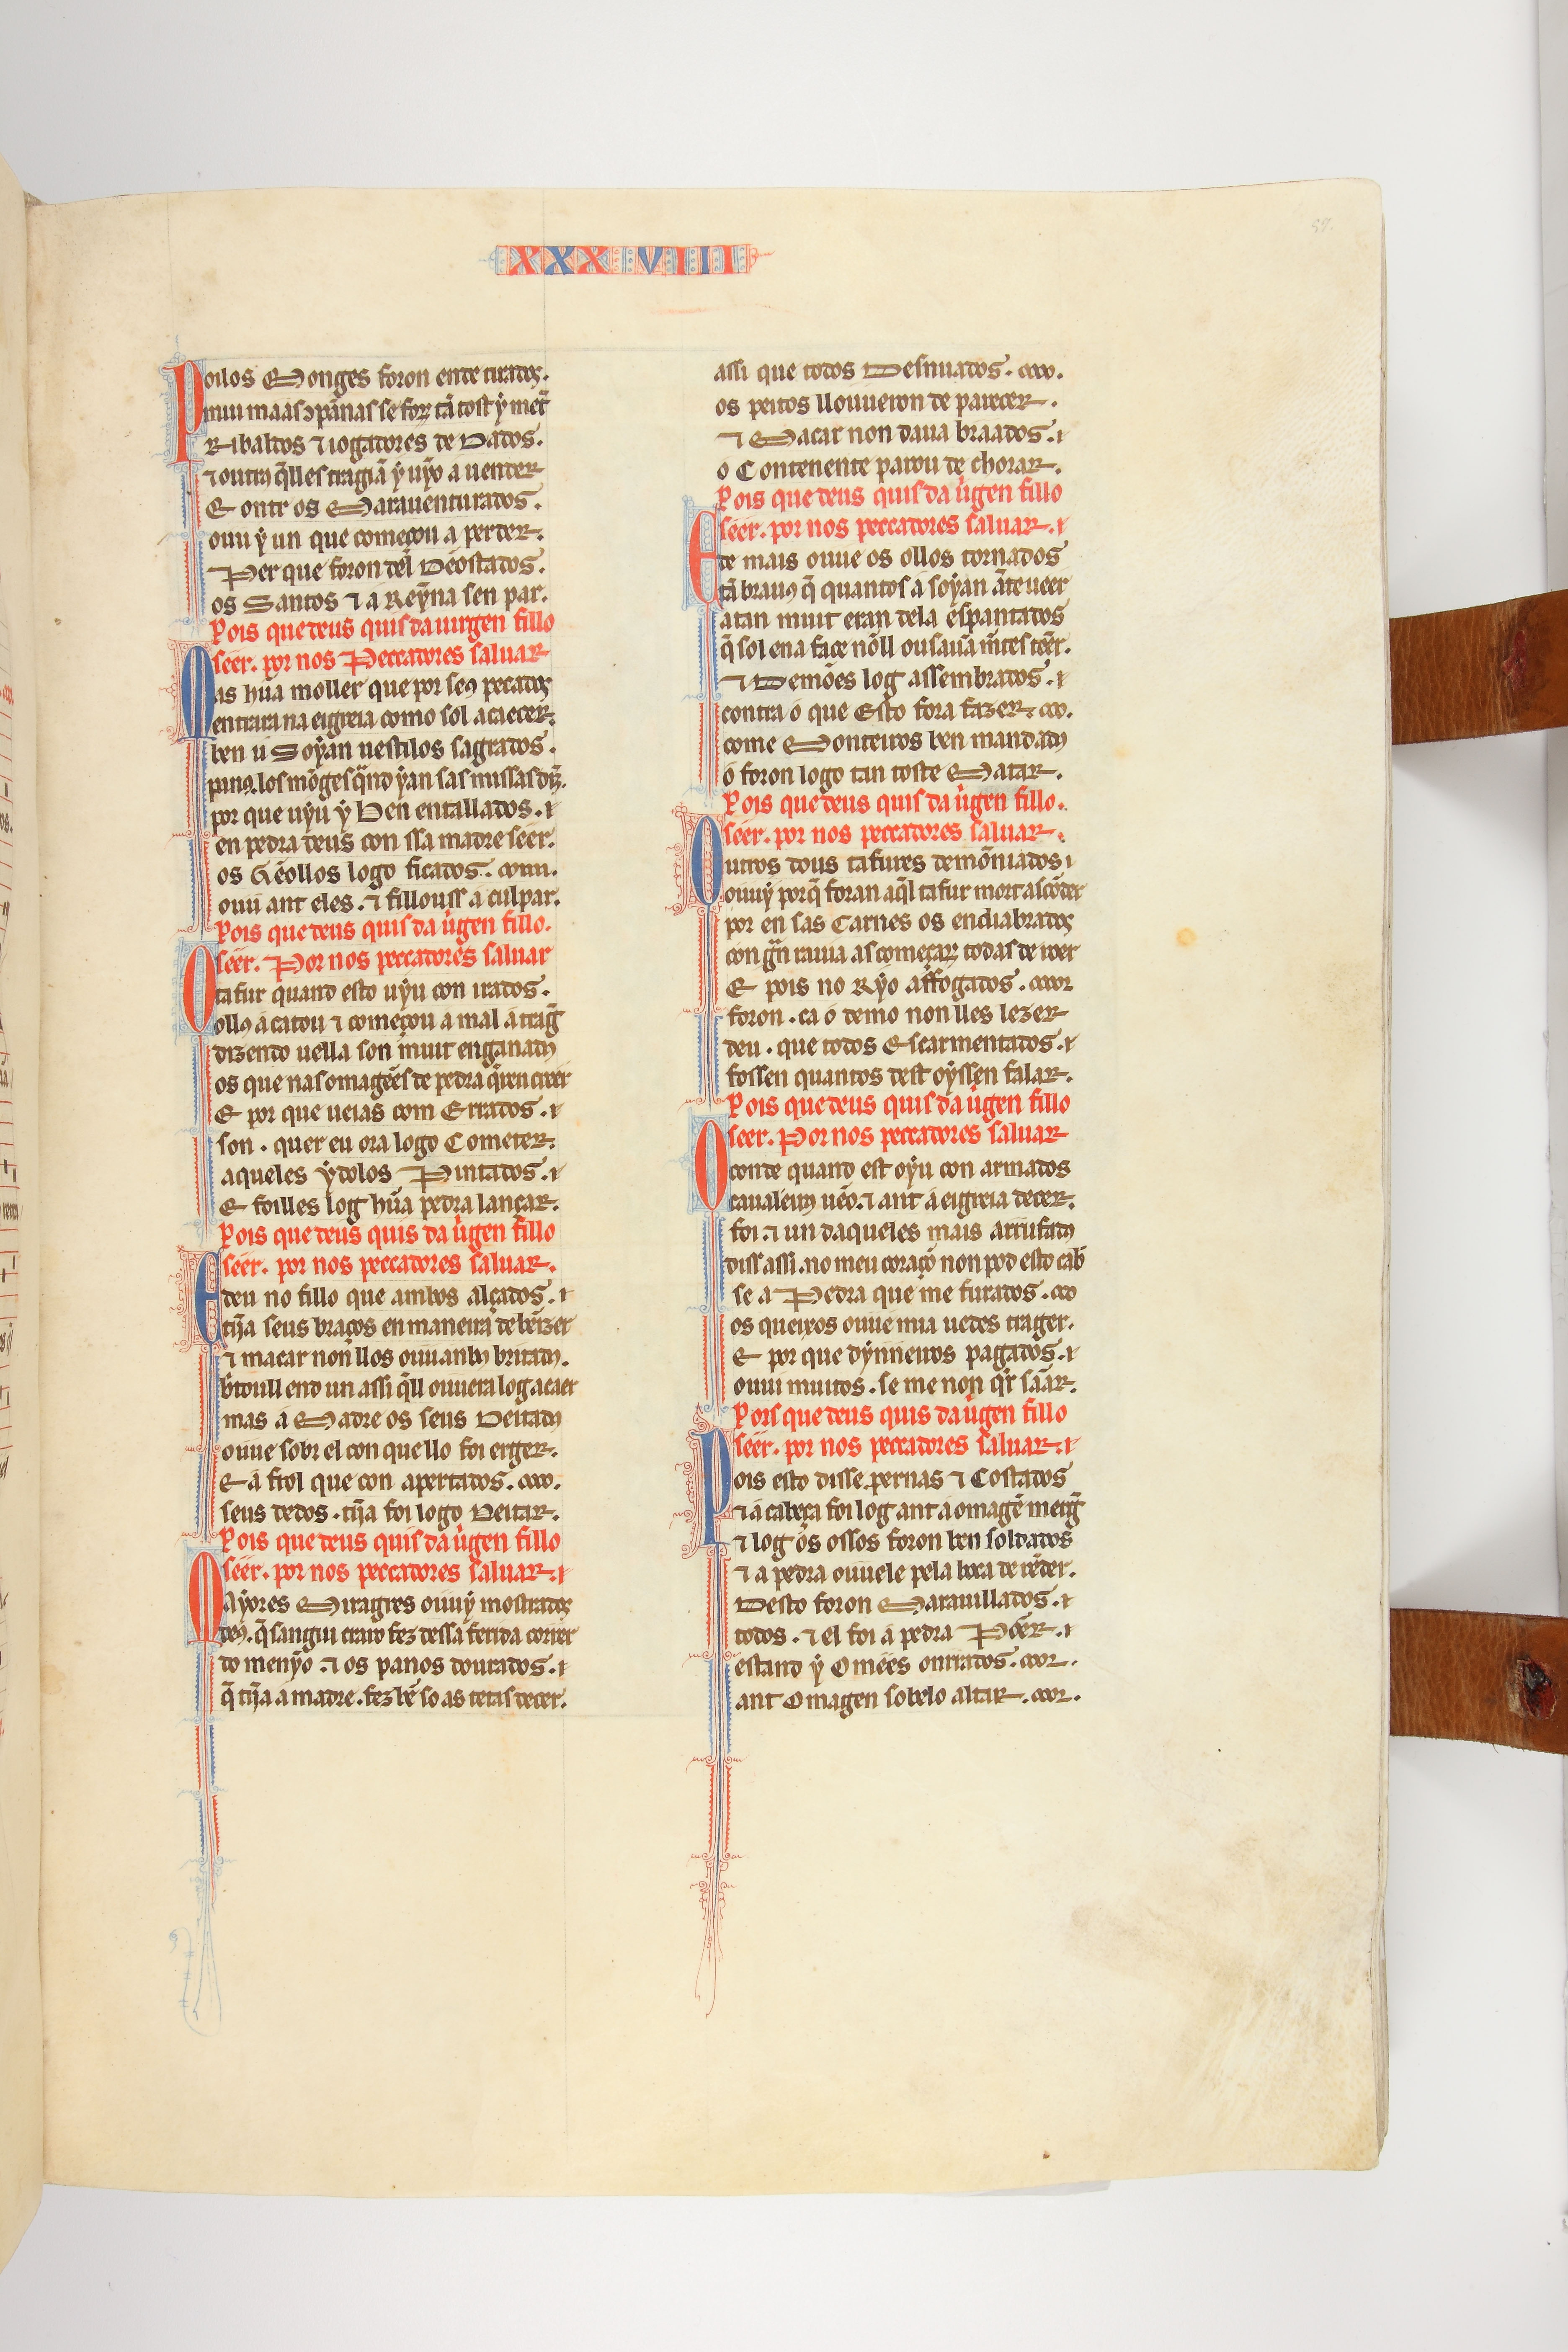 XXXVIII
57.
Poilos Monges foron ende tirados.
mui maas cõpãnas se forõ tã tost ỹ met̃
Ribaldos ⁊ iogadores de Dados.
⁊ outrꝯ q̃lles tragiã ỹ uỹo a uender
E ontr os Maauenturados.
ouu ỹ un que começou a perder.
Per que foron del Deostados.
os Santos ⁊ a Reỹna sen par.
Pois que deus quis da uirgen fillo
seer. por nos Peccadores saluar
Mas hũa moller que por seꝯ pecados
entrara na eigreia como sol acaecer.
ben u Soỹan uestilos sagrados.
panꝯ. los mõges q̃nd ỹan sas missas diz̃.
por que uỹu ỹ Ben entallados.
en pedra deus con ssa madre seer.
os Geollos logo ficados.
ouu ant eles. ⁊ fillouss a culpar.
Pois que deus quis da ũgen fillo.
seer. Por nos peccadores saluar
O tafur quand esto uỹu con irados.
ollꝯ a catou ⁊ começou a mal a trag̃
dizendo uella son muit enganadꝯ
os que nas omagẽes de pedra q̃ren creer
E por que ueias com Errados.
son. quer eu ora logo Cometer.
aqueles ỹdolos Pintados.
E foilles log hũa pedra lançar.
Pois que deus quis da ũgen fillo
seer. por nos peccadores saluar.
E deu no fillo que ambos alçados.
tĩja seus braços en maneira de bẽizer
⁊ macar non llos ouu anbꝯ britadꝯ.
b̃toull end un assi q̃ll ouuera log a caer
mas a Madre os seus Deitadꝯ
ouue sobr el con que llo foi erger.
E a frol que con apertados.
seus dedos. tĩja foi logo Deitar.
Pois que deus quis da ũgen fillo
seer. por nos peccadores saluar.
Maỹores Miragres ouuỹ mostrados
deꝯ. q̃ sangui craro fez dessa ferida correr
do menỹo. ⁊ os panos dourados.
q̃ tĩja a madre. fez bẽ so as tetas decer.
assi que todos Desnuados.
os peitos llouueron de parecer.
⁊ Macar non daua braados.
o Contenente parou de chorar.
Pois que deus quis da ũgen fillo
seer. por nos peccadores saluar.
E de mais ouue os ollos tornados
tã brauꝯ q̃ quantos a soỹan ãte ueer
atan muit eran dela espantados
q̃ sol ena face nõll ousauã m̃tes teer.
⁊ Demões log assembrados.
contra o que Esto fora fazer.
come Monteiros ben mandadꝯ
o foron logo tan toste Matar.
Pois que deus quis da ũgen fillo.
seer. por nos peccadores saluar.
Outros dous tafures demõniados
ouuỹ porq̃ foran aq̃l tafur mort ascõder
por en sas Carnes os endiabrados
con g̃n rauia as começarõ todas de roer
E pois no Rỹo affogados.
foron. ca o demo non lles lezer
deu. que todos Escarmentados.
fossen quantos dest oỹssen falar.
Pois que deus quis da ũgen fillo
seer. Por nos peccadores saluar
O conde quand est oỹu con armados
caualeirꝯ uẽo. ⁊ ant a eigreia decer.
foi. ⁊ un daqueles mais arrufadꝯ
diss assi. no meu coraçõ non pod esto cab̃
se a Pedra que me furados.
os queixos ouue mia uedes trager.
E por que dỹnneiros pagados.
ouui muitos. se me non q̃r sãar.
Pois que deus quis da ũgen fillo
seer. por nos peccadores saluar.
Pois esto disse. pernas ⁊ Costados
⁊ a cabeça foi log ant a omagẽ merg̃
⁊ log os ossos foron ben soldados
⁊ a pedra ouuele pela boca de rẽder.
Desto foron Marauillados.
todos. ⁊ el foi a pedra Põer.
estand ỹ Omẽes onrrados.
ant Omagen sobelo altar.